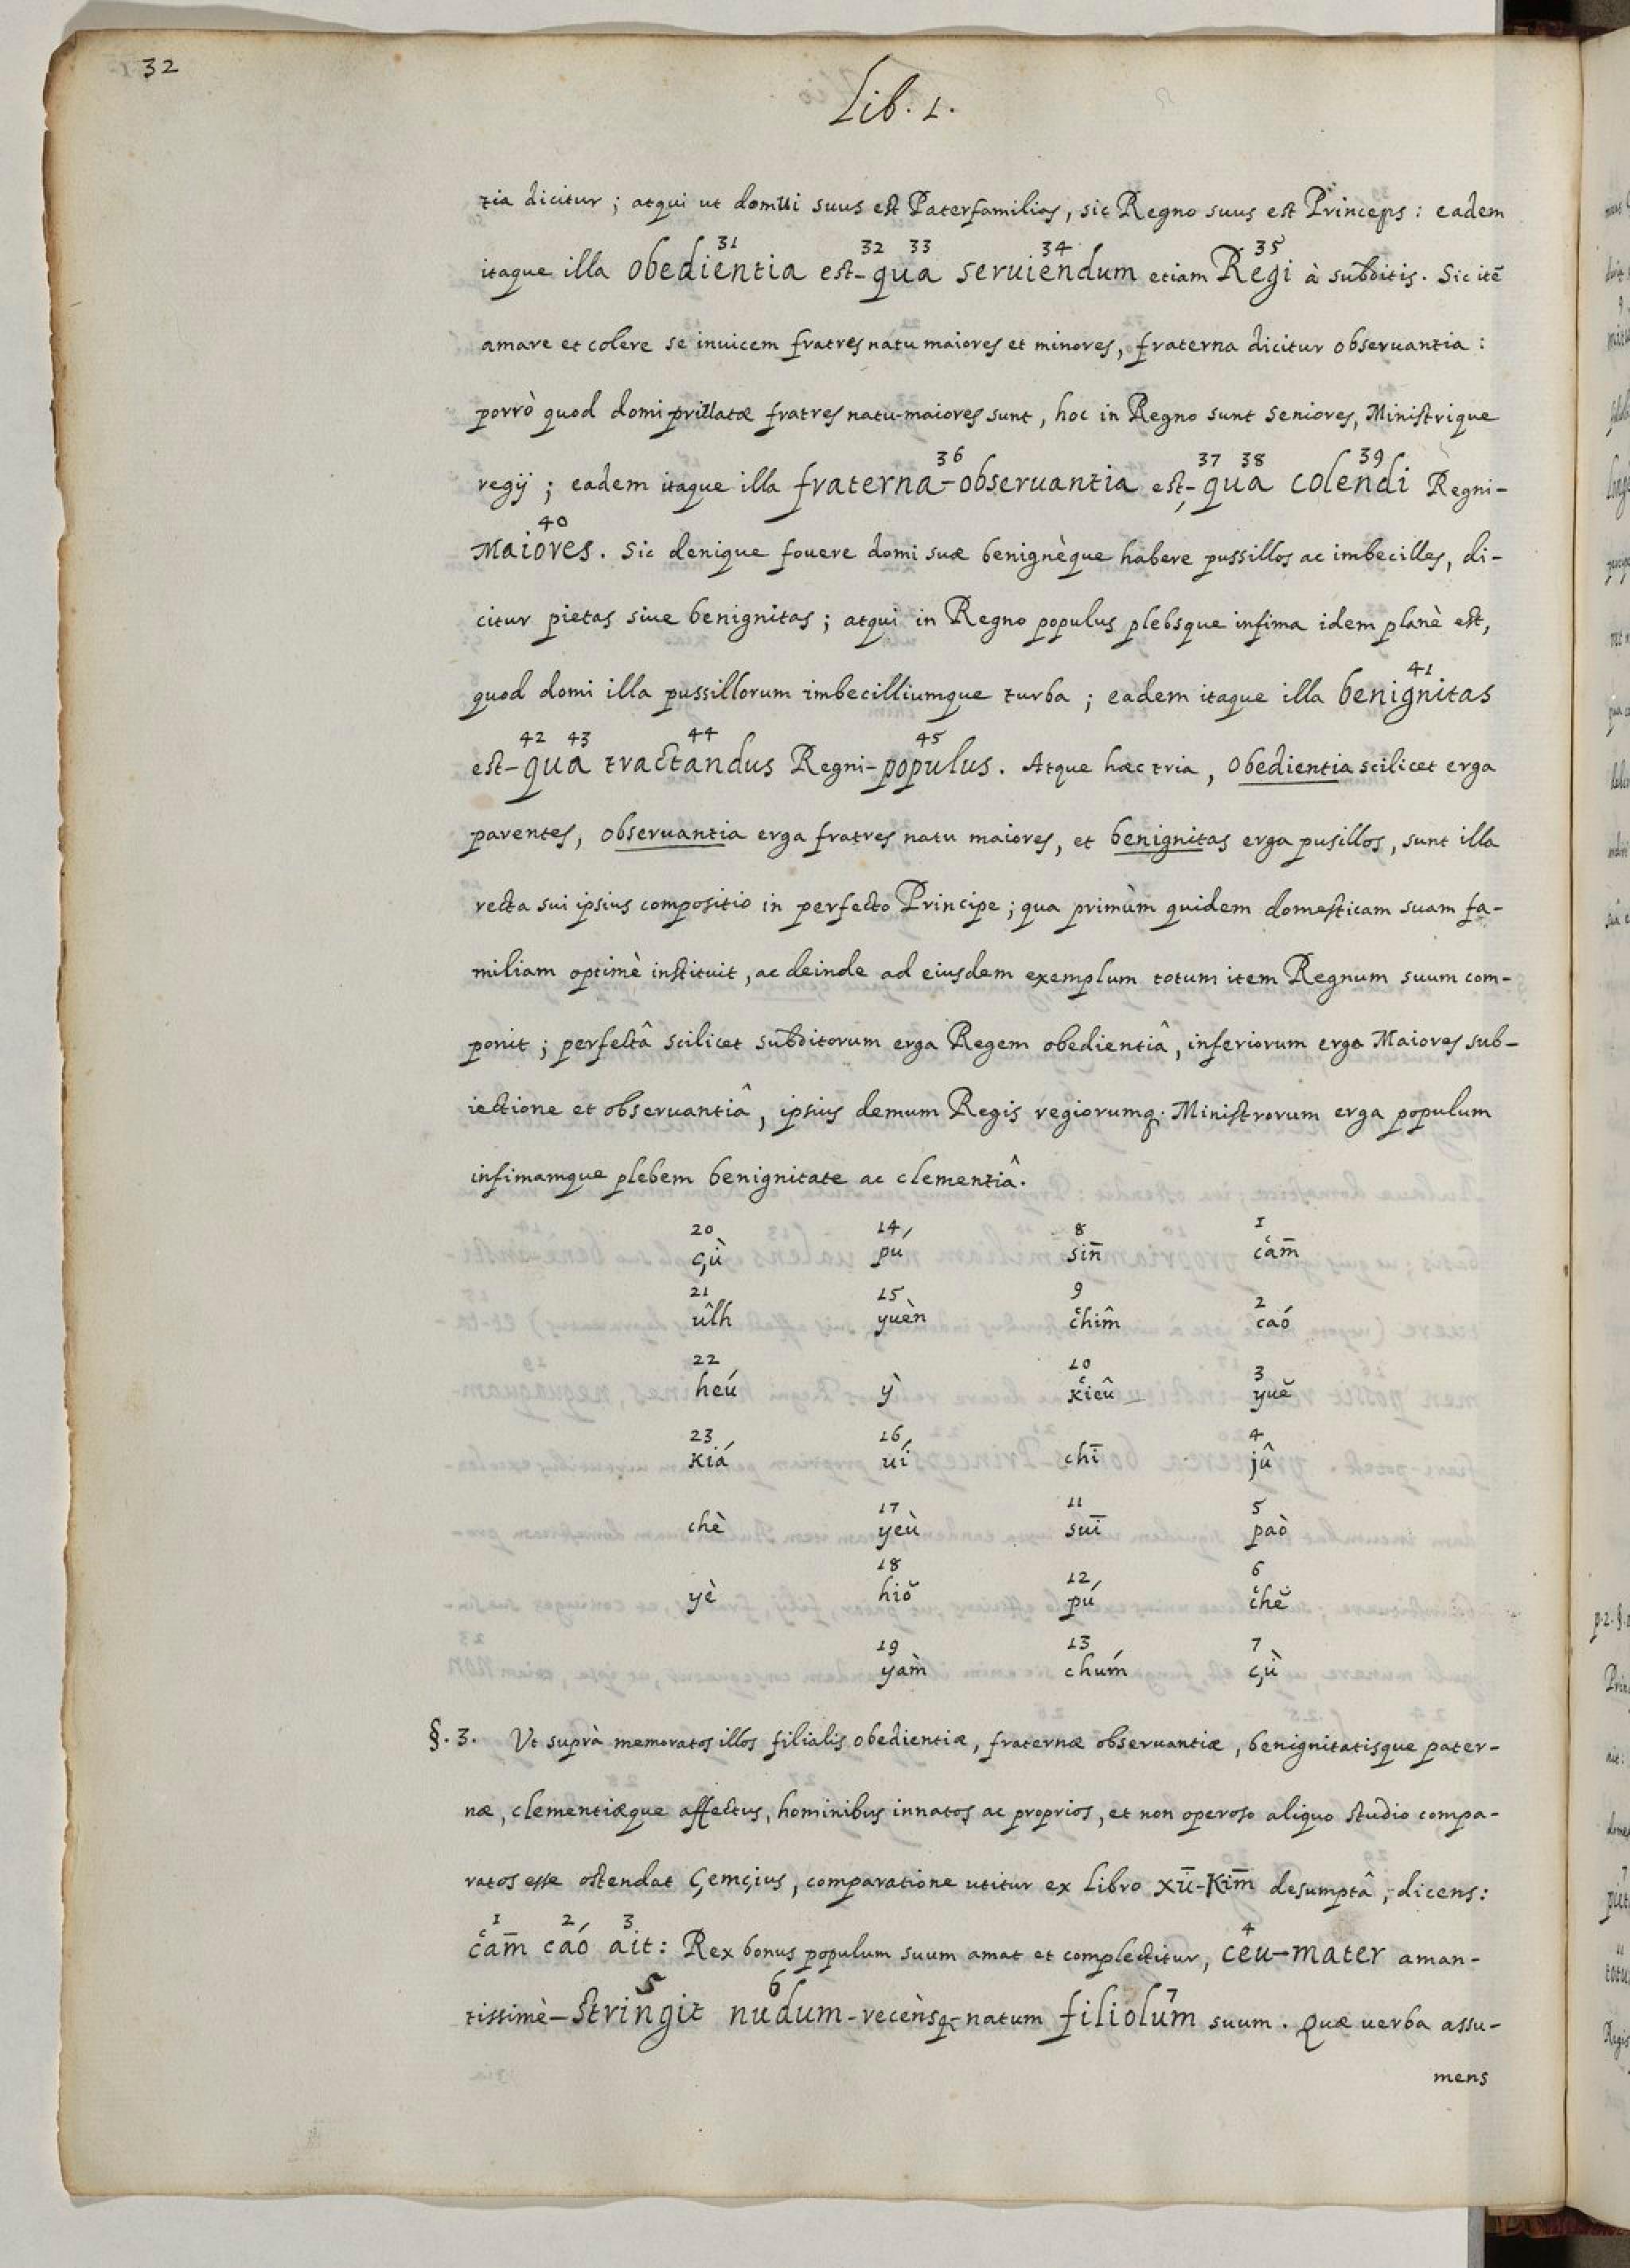 32
Lib. 1.
tia dicitur; atqui ut domui suus est Paterfamilias, sic Regno suus est Princeps: eadem
31 32 33 34 35
itaque illa obedientia est-qua seruiendum etiam Regi à subditis. Sic itē
amare et colere se inuicem fratres natu maiores et minores, fraterna dicitur obseruantia:
porrò quod domi priuatæ fratres natu-maiores sunt, hoc in Regno sunt seniores, Ministrique
36 37 38 39
regij; eadem itaque illa fraterna-obseruantia est-, qua colendi Regni-
40
Maiores. Sic denique fouere domi suæ benignèque habere pussillos ac imbecilles, di-
citur pietas siue benignitas; atqui in Regno populus plebsque infima idem planè est,
quod domi illa pussillorum imbecilliumque turba; eadem itaque illa benignitas
41
42 43 44 45
est-qua tractandus Regni-populus. Atque hæc tria, obedientia scilicet erga
parentes, obseruantia erga fratres natu maiores, et benignitas erga pusillos, sunt illa
recta sui ipsius compositio in perfecto Principe; qua primùm quidem domesticam suam fa-
miliam optimè instituit, ac deinde ad eiusdem exemplum totum item Regnum suum com-
ponit; perfectâ scilicet subditorum erga Regem obedientiâ, inferiorum erga Maiores sub-
iectione et obseruantiâ, ipsius demum Regis regiorumq; Ministrorum erga populum
infimamque plebem benignitate ac clementiâ.
20 14 8 1
çù pú sin̄ ʿcam̄
21 15 9 2
ûlh yuèn ʿchim̂ caó
22 10 3
heú ỳ ʿkieû yuĕ
23 16 4
kiá uí chī jû
17 11 5
chè yeù suī paò
18 12 6
yè hiŏ pú ʿchĕ
19 13 7
yam̀ chuḿ çù
§. 3. Ut suprà memoratos illos filialis obedientiæ, fraternæ obseruantiæ, benignitatisque pater-
næ, clementiæque affectus, hominibus innatos ac proprios, et non operoso aliquo studio compa-
ratos esse ostendat Çemçius, comparatione utitur ex Libro Xū-Kim̄ desumptâ, dicens:
1 2 3 4
ʿcam̄ cáo ait: Rex bonus populum suum amat et complectitur, ceu-mater aman-
5 6 7
tissimè-stringit nudum-recènsq;-natum filiolum suum. Quæ uerba assu-
mens